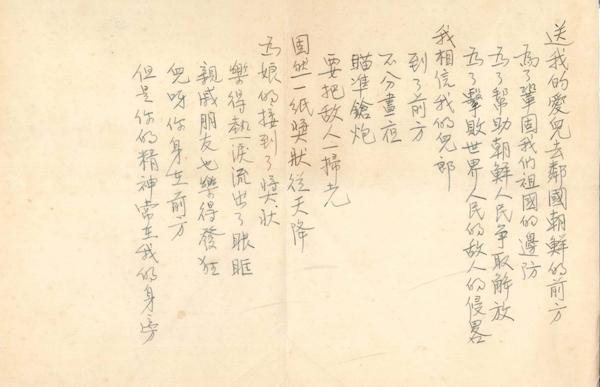 送我的愛兒去鄰國朝鮮的前方
為了鞏固我们祖國的邊防
為了幫助朝鮮人民争取解放
為了擊敗世界人民的敌人的侵畧
我相信我的兒郎
到了前方
不分晝夜
瞄准鎗炮
要把敌人一掃光
国然一纸奬狀从天降
為娘的接到了奬状
樂得熱淚流出了眼眶
親戚朋友也樂得發狂
兒呀你身在前方
但是你的精神常在我的身旁